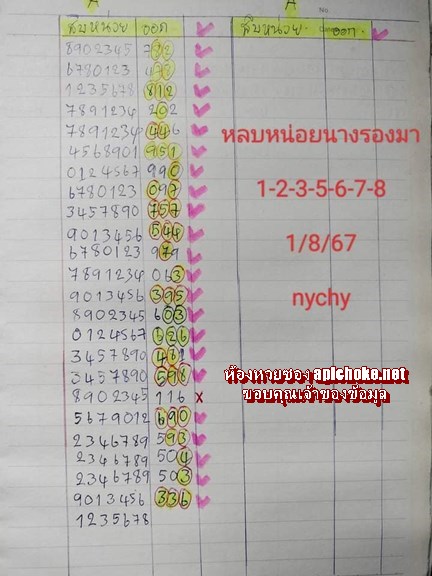 A
A
สิบหน่วย ออก สิบหน่วย ออก
8902345
6780123
1235678 812
7891234 202
7891234 446
4568901 951
0124567 990
6780123 097
3457890 757
9013456 544
6780123 979
7891234 063
9013456 395
8902345 603
0124567 626
3457890 461
3457890 598
8902345 116 x
5679012 690
2346789 593
2346789 504
2346789 503
9013456 336
1235678
หลบหน่อยนางรองมา
1-2-3-5-6-7-8
1/8/67
nychy
ห้องหวยซอง apichoke.net
ขอบคุณเจ้าของข้อมูล